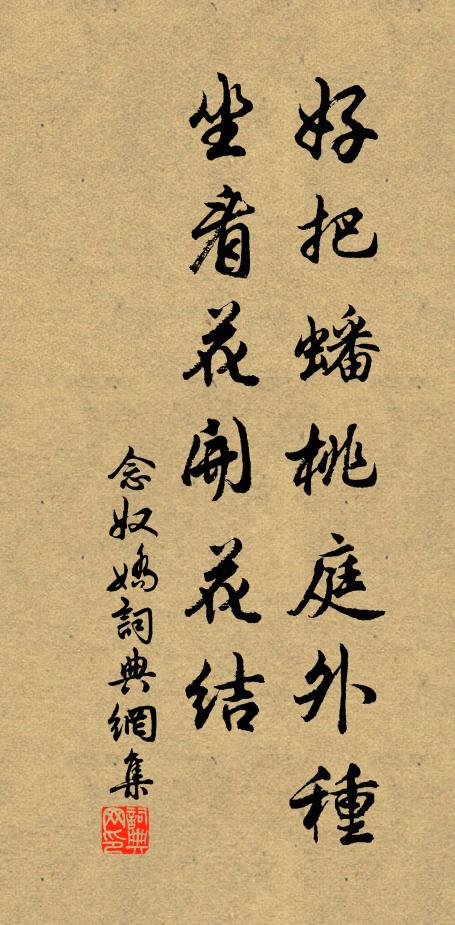 好把蟠桃庭外種
坐看花開花結
念奴嬌詞典網集
詞典網印